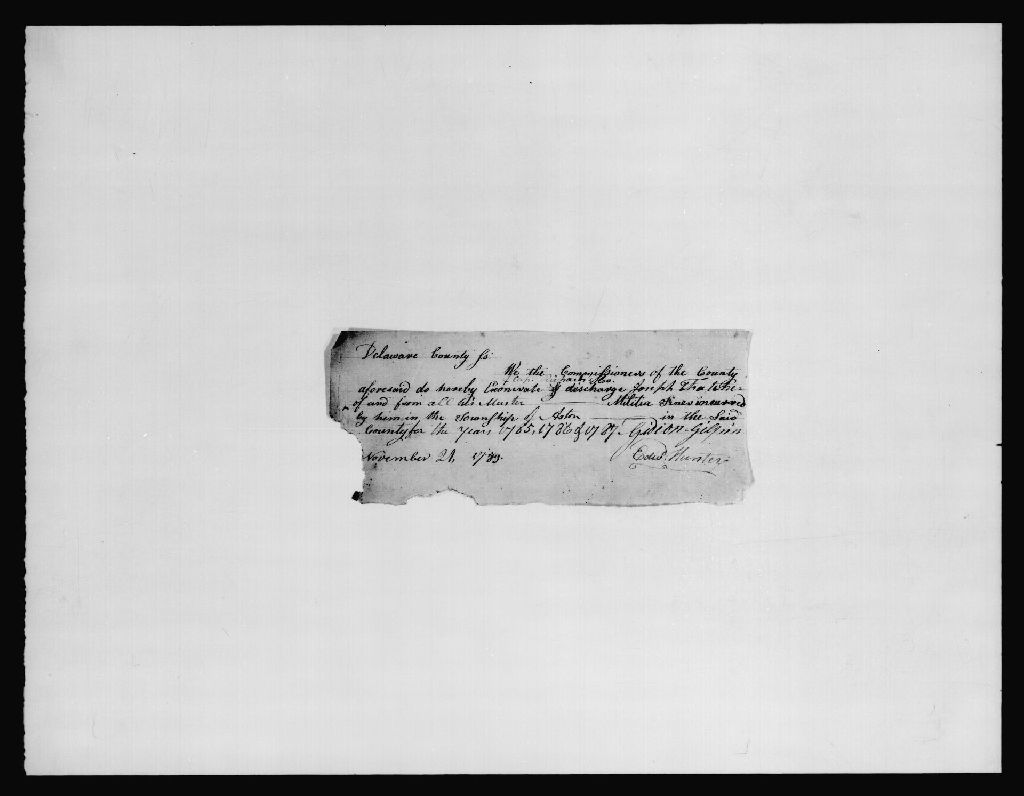 Delaware County ss.
We the Commissioners of the County
aforesaid do hereby Exonirate & discharge Joseph
of and from all his Muster Militia fines incurred
by him in the Township of Aston in the Said
County for the Years 1785, 1786 & 1787. Gideon Gilpin
November 21, 1789. Edwd. Hunter